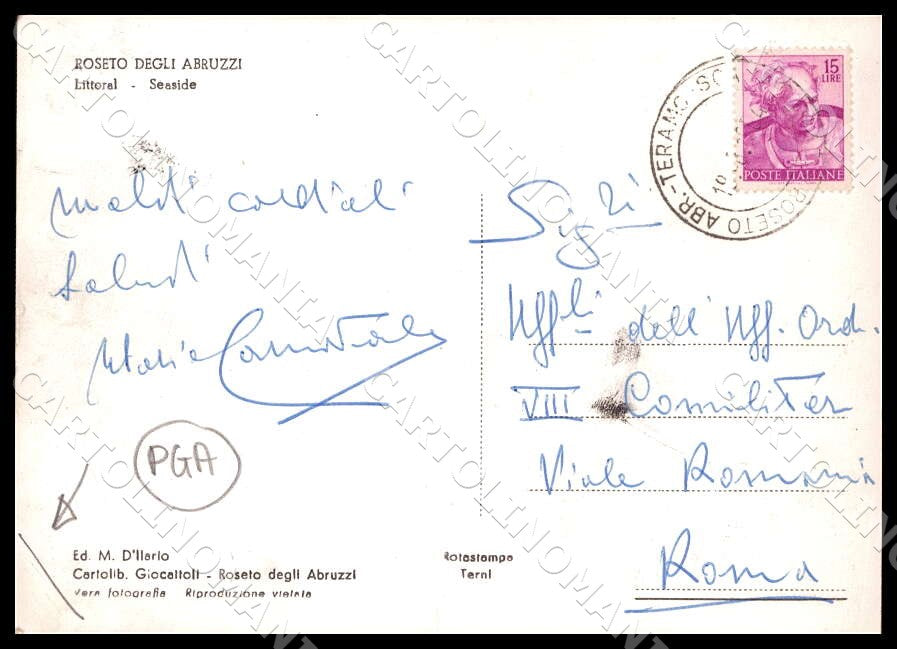 ROSETO DEGLI ABRUZZI
Littoral - Seaside
15
LIRE
POSTE ITALIANE
ROSETO ABR. - TERAMO
molti cordiali
saluti
Maria
PGA
Ed. M. D'Ilario
Cartolib. Giocattoli - Roseto degli Abruzzi
Vera fotografia Riproduzione vietata
Rotastampa
Terni
Sig.ri
Uff.li dell' Uff. Ord.
VIII Comiliter
Viale Romania
Roma
CARTOLINOMANIA